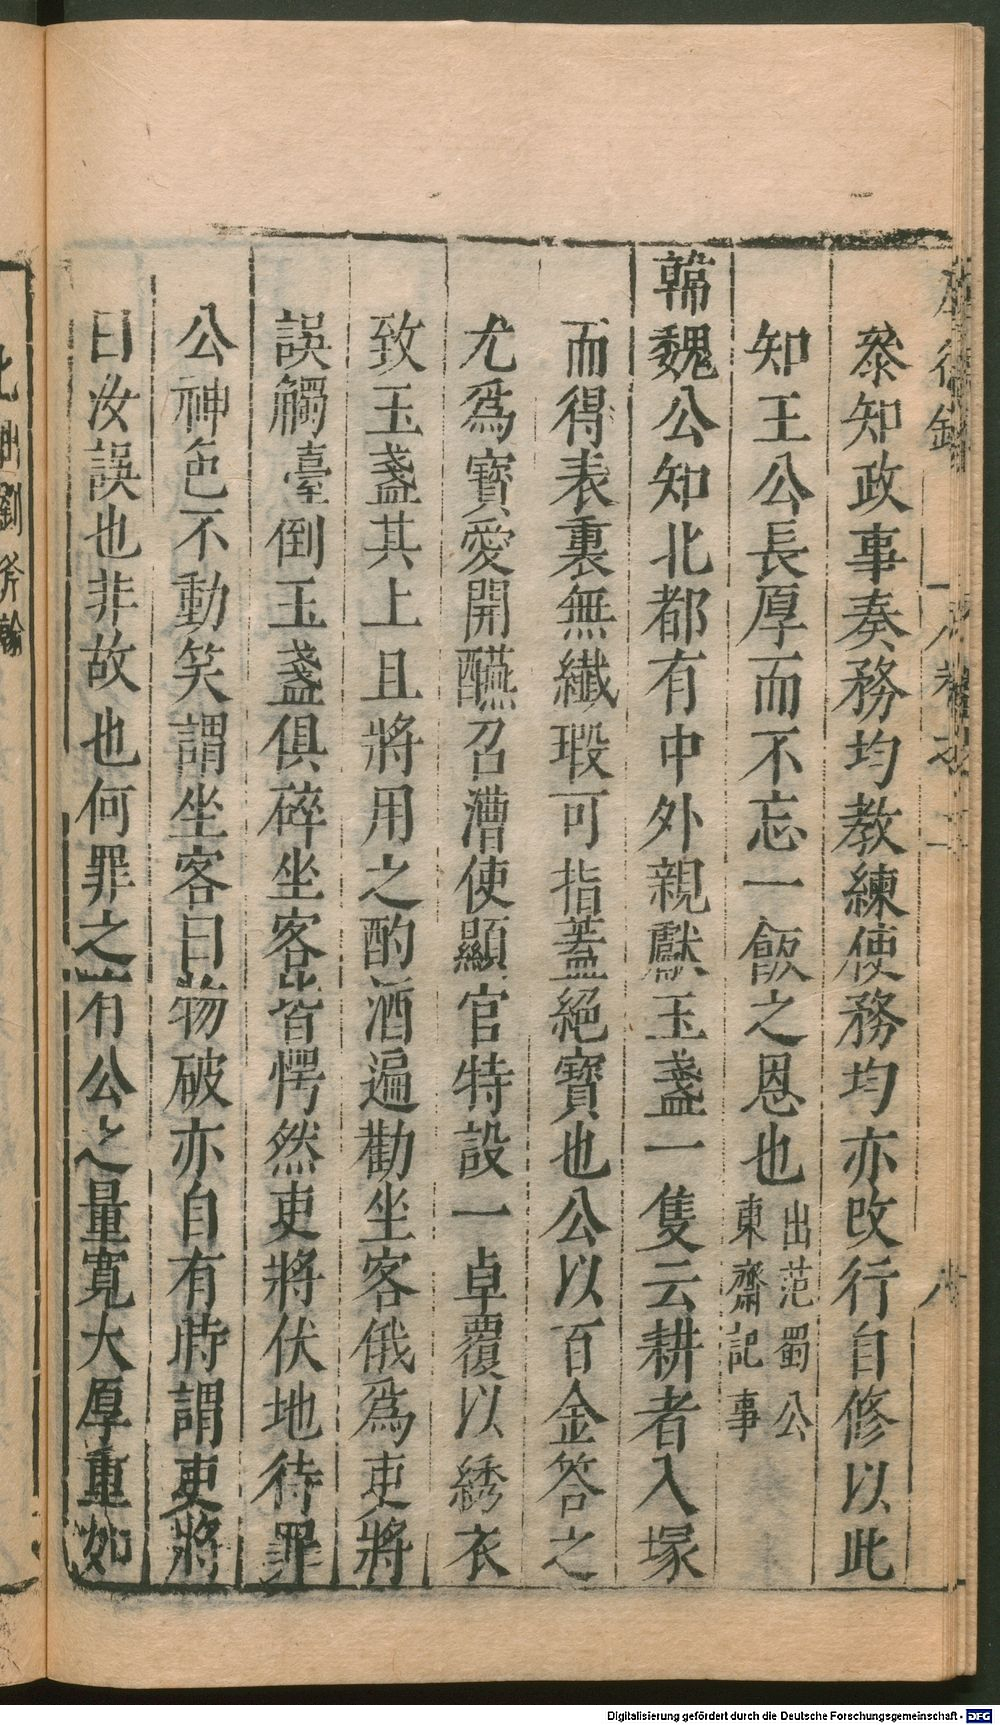 叅知政事奏務均教練使務均亦改行自修以此
知王公長厚而不忘一飯之恩也出范蜀公東齋記事
韓魏公知北都有中外親獻玉盞一隻云耕者入塚
而得表裏無纎瑕可指蓋絕寶也公以百金答之
尤爲寶愛開醼召漕使顯官特設一卓覆以綉衣
致玉盞其上且將用之酌酒遍勸坐客俄爲吏將
誤觸臺倒玉盞俱碎坐客皆愕然吏將伏地待罪
公神色不動笑謂坐客曰物破亦自有時謂吏將
曰汝誤也非故也何罪之有公之量寬大厚重如
此出劉斧翰
Digitalisierung gefördert durch die Deutsche Forschungsgemeinschaft - DFG